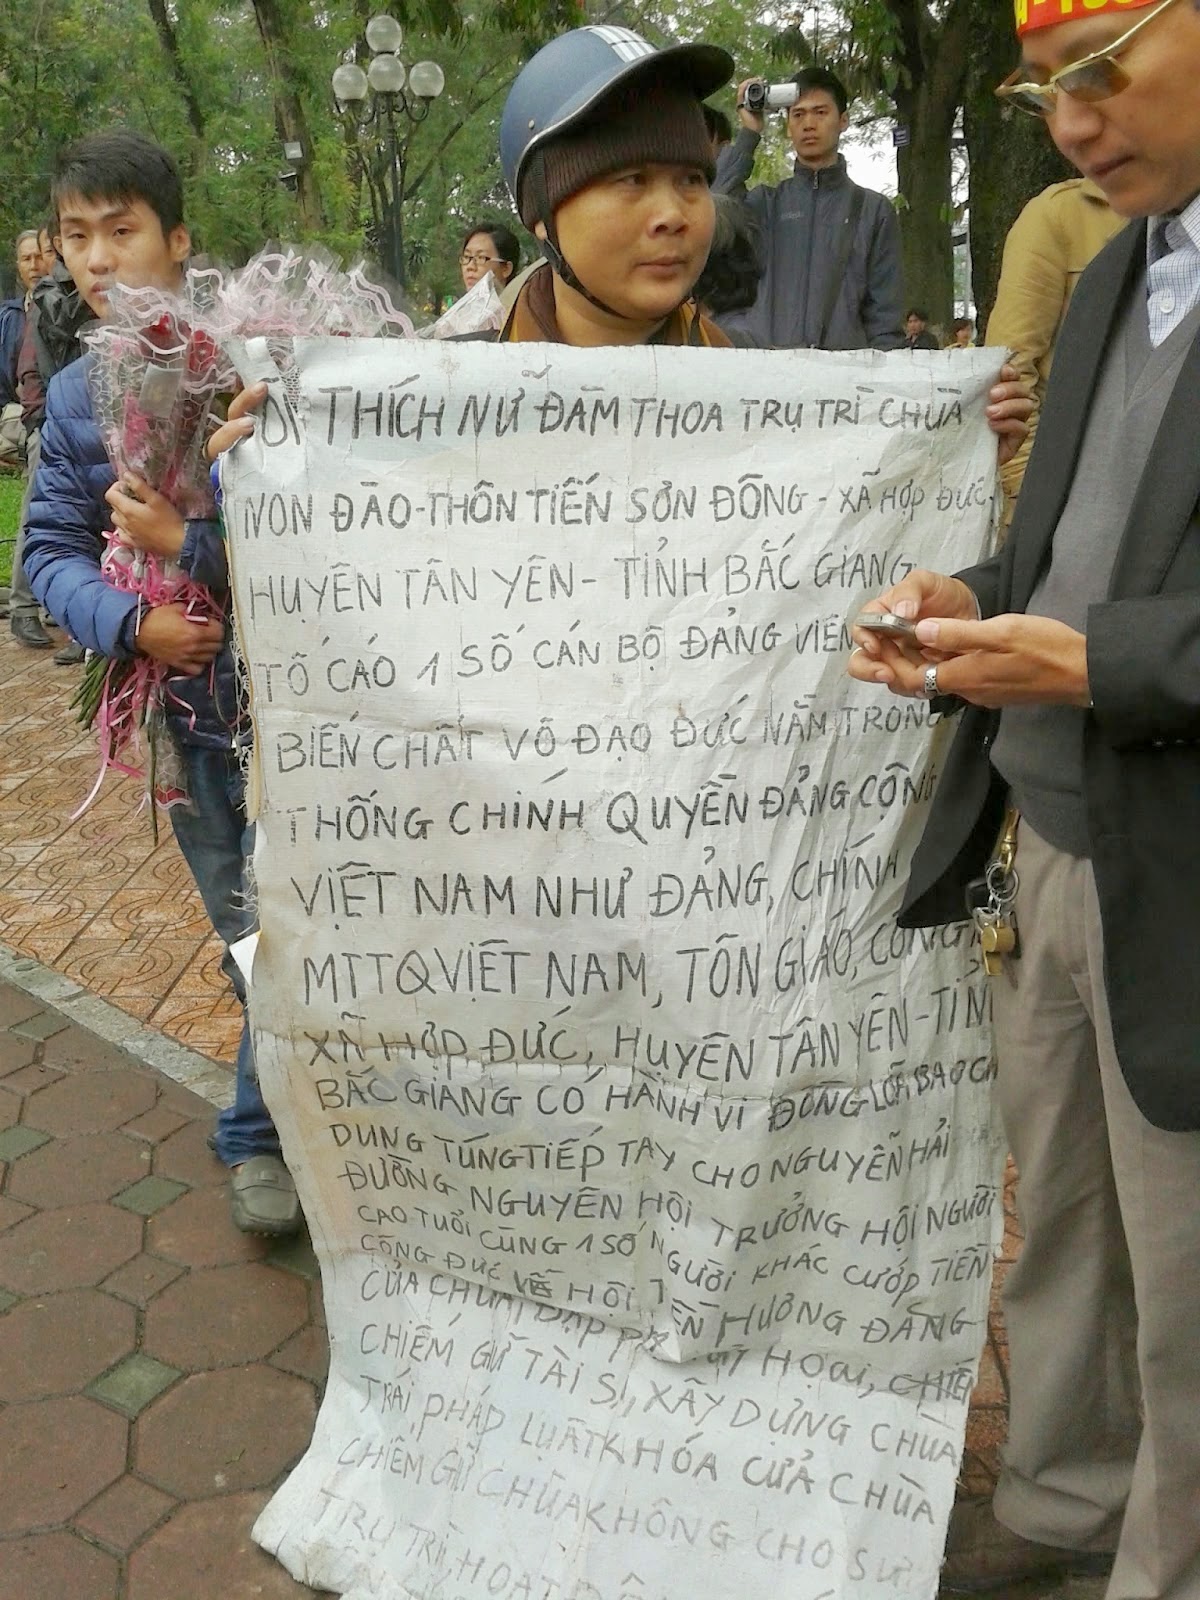 THÍCH NỮ ĐÀM THOA TRỤ TRÌ CHÙA
NON ĐÀO-THÔN TIẾN SƠN ĐÔNG - XÃ HỢP ĐỨC,
HUYỆN TÂN YÊN - TỈNH BẮC GIANG
TỐ CÁO 1 SỐ CÁN BỘ ĐẢNG VIÊN
BIẾN CHẤT VÔ ĐẠO ĐỨC NẰM TRONG
THỐNG CHÍNH QUYỀN ĐẢNG CỘNG
VIỆT NAM NHƯ ĐẢNG, CHÍNH
MTTQ VIỆT NAM, TÔN GIÁO, CÔNG
XÃ HỢP ĐỨC, HUYỆN TÂN YÊN - TỈN
BẮC GIANG CÓ HÀNH VI ĐỒNG LÕA BAO CH
DUNG TÚNG TIẾP TAY CHO NGUYỄN HẢI
ĐƯỜNG NGUYÊN HỘI TRƯỞNG HỘI NGƯỜI
CAO TUỔI CÙNG 1 SỐ NGƯỜI KHÁC CƯỚP TIỀN
CÔNG ĐỨC VỀ HỘI TIỀN HƯƠNG ĐĂNG
CỦA CHÙA, ĐẬP HOẠI, CHIẾ
CHIẾM GIỮ TÀI S, XÂY DỰNG CHÙA
TRÁI PHÁP LUẬT KHÓA CỬA CHÙA
CHIẾM GIỮ CHÙA KHÔNG CHO SƯ
TRỤ TRÌ HOẠT